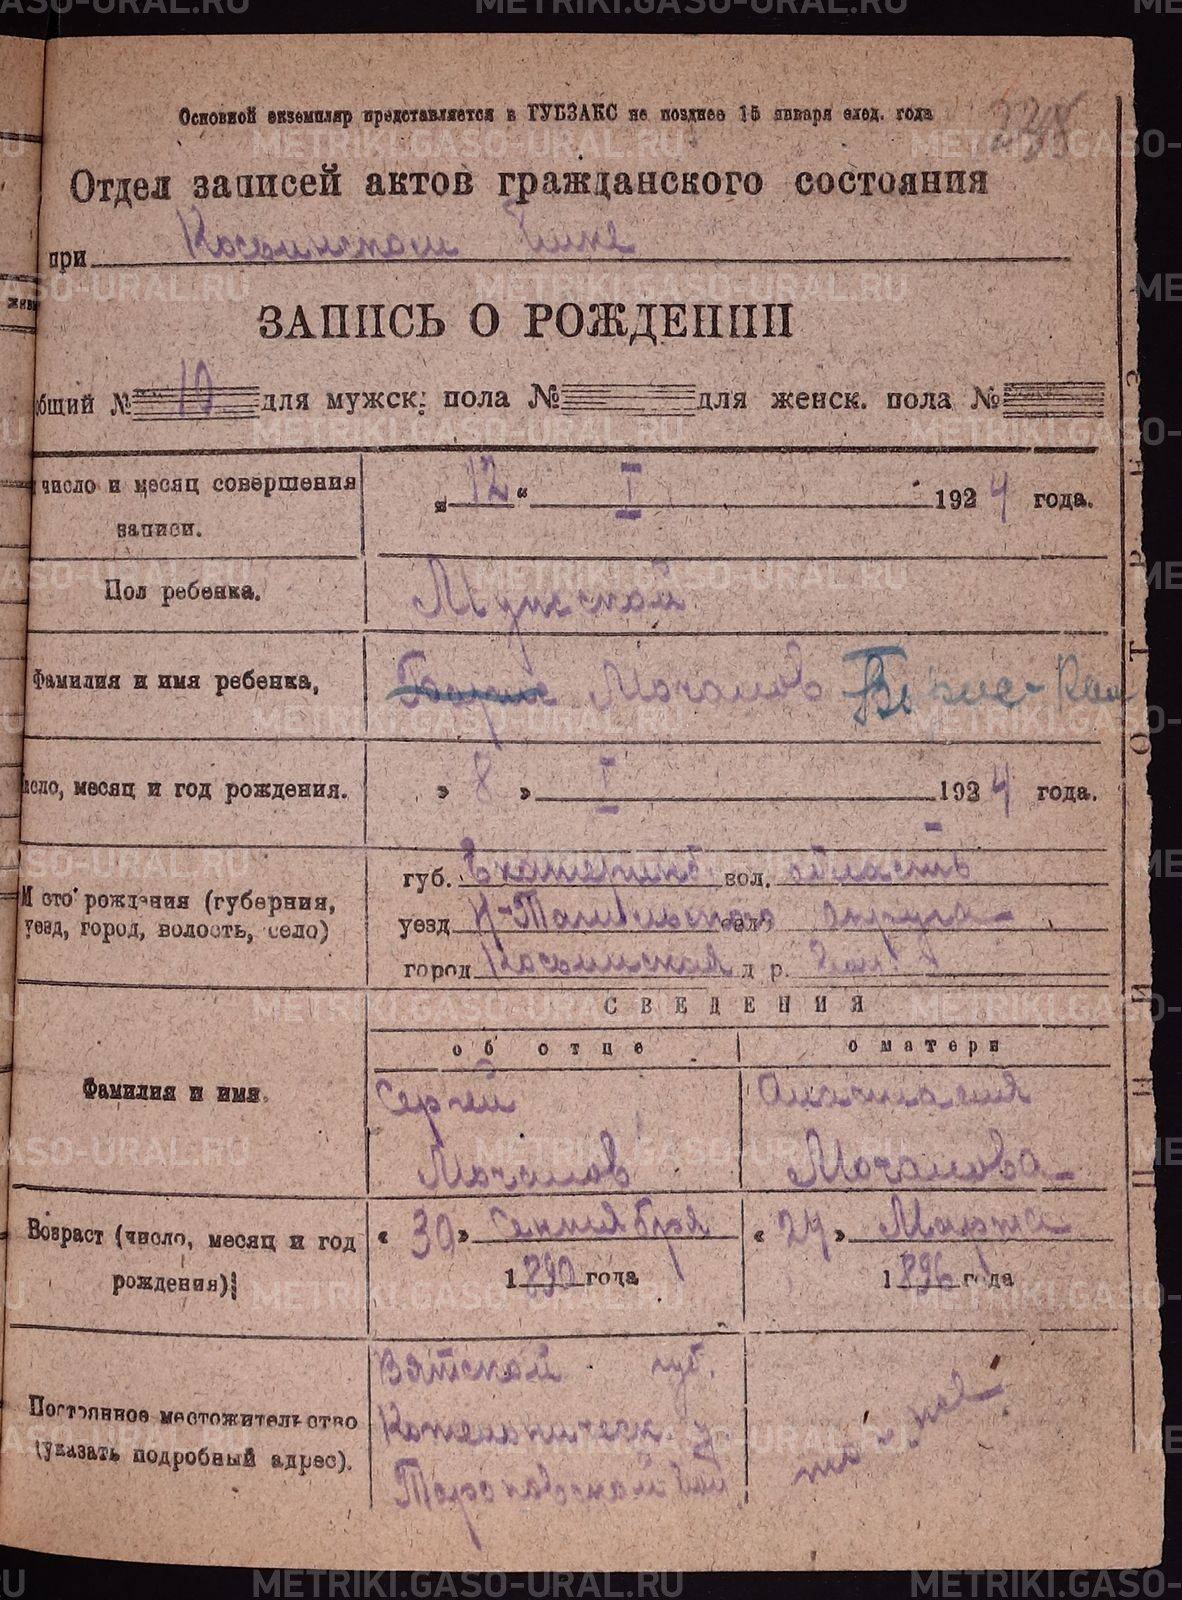 Основной екземпляр представляется в ГУБЗАКС не позднее 15 января след. года
238
Отдел записей актов гражданского состояния
при
ЗАПИСЬ О РОЖДЕНИИ
общий № 10 для мужск: пола № для женск. пола №
число и месяц совершения записи.
„ 12 “ I 1924 года.
Пол ребенка.
Мужской
Фамилия и имя ребенка,
Борис Мочалов
число, месяц и год рождения.
„ 8 „ I 1924 года.
М сто рождения (губерния, уезд, город, волость, село)
губ. Екатеринб. вол. область
уезд Н-Тагильского округа
город Косьинская д р.
СВЕДЕНИЯ
об отце
о матери
Фамилия и имя.
Сергей Мочалов
Анастасия Мочалова
Возраст (число, месяц и год рождения)
« 30 » Сентября 1890 года
« 24 » Марта 1896 года
Постоянное местожительство (указать подробный адрес).
Вятской губ.
Котельническ. у.
то-же
METRIKI.GASO-URAL.RU